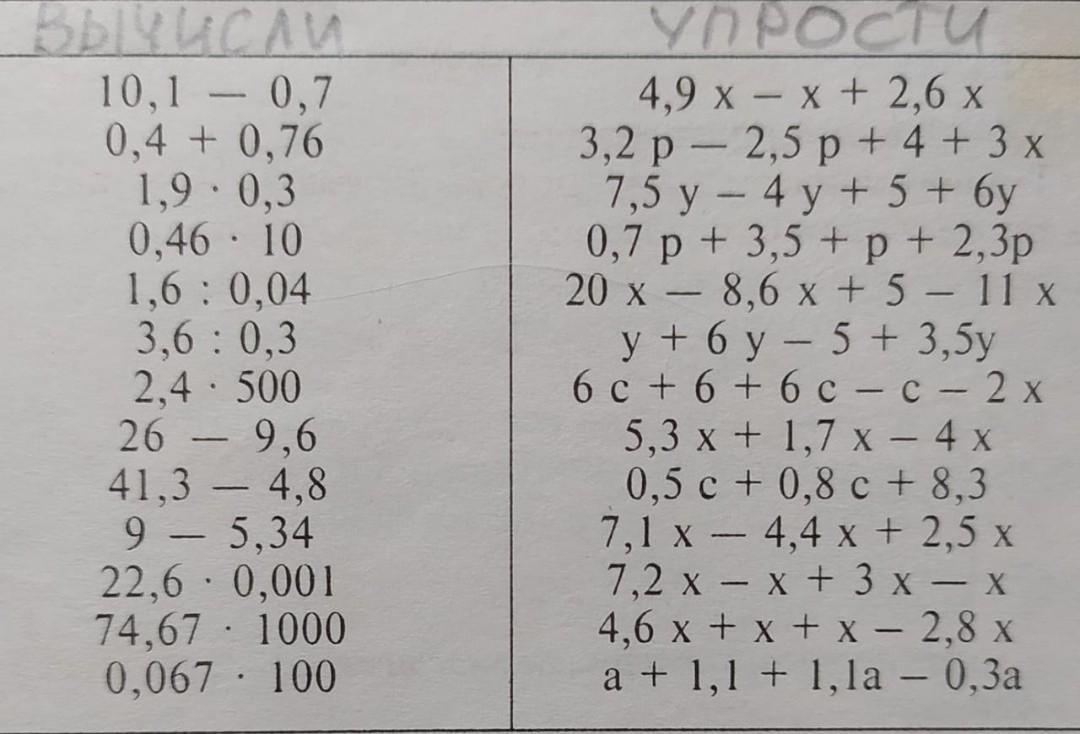 ВЫЧИСЛИ
10,1 — 0,7
0,4 + 0,76
1,9 · 0,3
0,46 · 10
1,6 : 0,04
3,6 : 0,3
2,4 · 500
26 — 9,6
41,3 — 4,8
9 — 5,34
22,6 · 0,001
74,67 · 1000
0,067 · 100
УПРОСТИ
4,9 x — x + 2,6 x
3,2 p — 2,5 p + 4 + 3 x
7,5 y — 4 y + 5 + 6y
0,7 p + 3,5 + p + 2,3p
20 x — 8,6 x + 5 — 11 x
y + 6 y — 5 + 3,5y
6 c + 6 + 6 c — c — 2 x
5,3 x + 1,7 x — 4 x
0,5 c + 0,8 c + 8,3
7,1 x — 4,4 x + 2,5 x
7,2 x — x + 3 x — x
4,6 x + x + x — 2,8 x
a + 1,1 + 1,1a — 0,3a